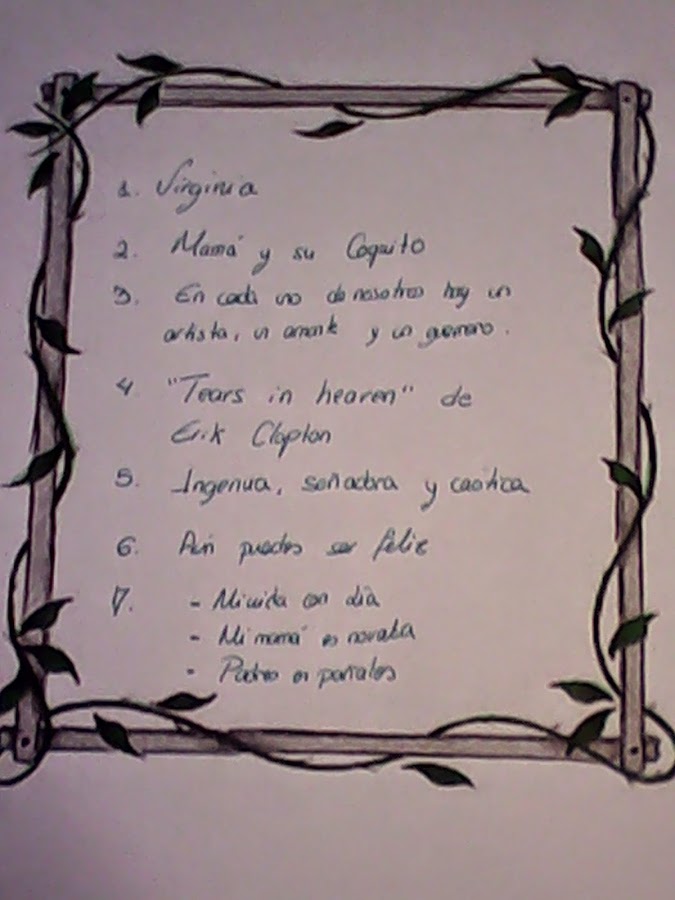 1. Virginia
2. Mamá y su Coquito
3. En cada uno de nosotros hay un
artista, un amante y un guerrero.
4 "Tears in heaven" de
Erik Clapton
5. Ingenua, soñadora y caótica
6. Aún puedes ser feliz
7. - Mi vida con
- Mi mamá es novata
- Padres en pañales